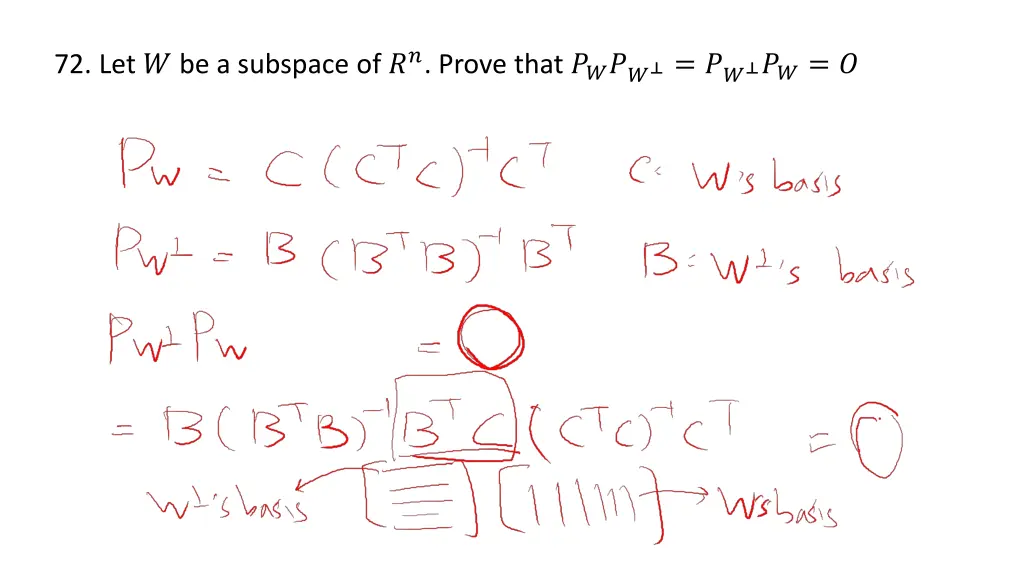 72. Let 𝑊 be a subspace of 𝑅ⁿ. Prove that 𝑃_W 𝑃_{W^⊥} = 𝑃_{W^⊥} 𝑃_W = 𝑂
P_W = C (C^T C)^{-1} C^T C: W's basis
P_{W^⊥} = B (B^T B)^{-1} B^T B: W^⊥'s basis
P_{W^⊥} P_W = O
= B (B^T B)^{-1} B^T C (C^T C)^{-1} C^T = O
W^⊥'s basis W's basis